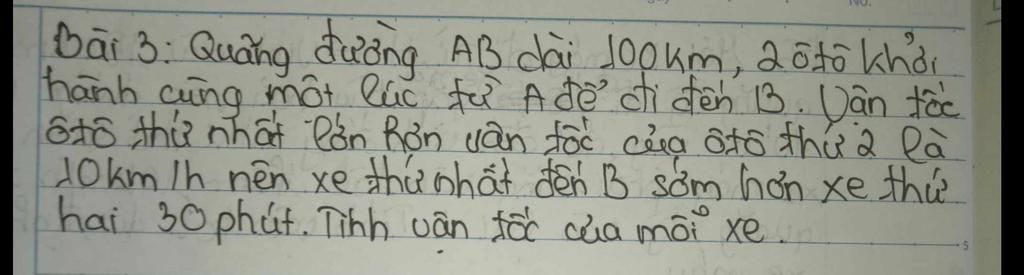 Bài 3: Quãng đường AB dài 100km, 2 ôtô khởi
hành cùng một lúc từ A để đi đến B. Vận tốc
ôtô thứ nhất lớn hơn vận tốc của ôtô thứ 2 là
10km/h nên xe thứ nhất đến B sớm hơn xe thứ
hai 30 phút. Tính vận tốc của mỗi xe.